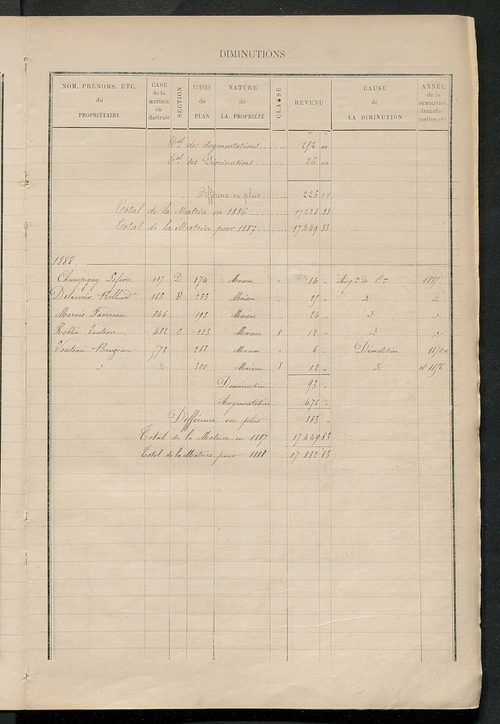 DIMINUTIONS
NOM, PRÉNOMS, ETC. du PROPRIÉTAIRE | CASE de la MATRICE cadastrale | SECTION | NUMÉRO du PLAN | NATURE de LA PROPRIÉTÉ | CLASSE | REVENU | CAUSE de LA DIMINUTION | ANNÉE de la DÉMOLITION,
Tal des Augmentations 252 00
Tal des Diminutions 26 00
Différence en plus 226 00
Total de la Matrice en 1886 17223 83
Total de la Matrice pour 1887 17449 83
1888
Champigny 107 D 174 Maison 14
Delacroix 163 B 233 Maison
Marais 346 193 Maison 24 do
Roblin 482 223 Maison 8 12 do
Bougreau 772 283 Maison 6 Démolition
do do 300 Maison 8 12 do
Diminution 93
Augmentation 476
Différence en plus 383
Total de la Matrice en 1887 17449 83
Total de la Matrice pour 1888 17832 83